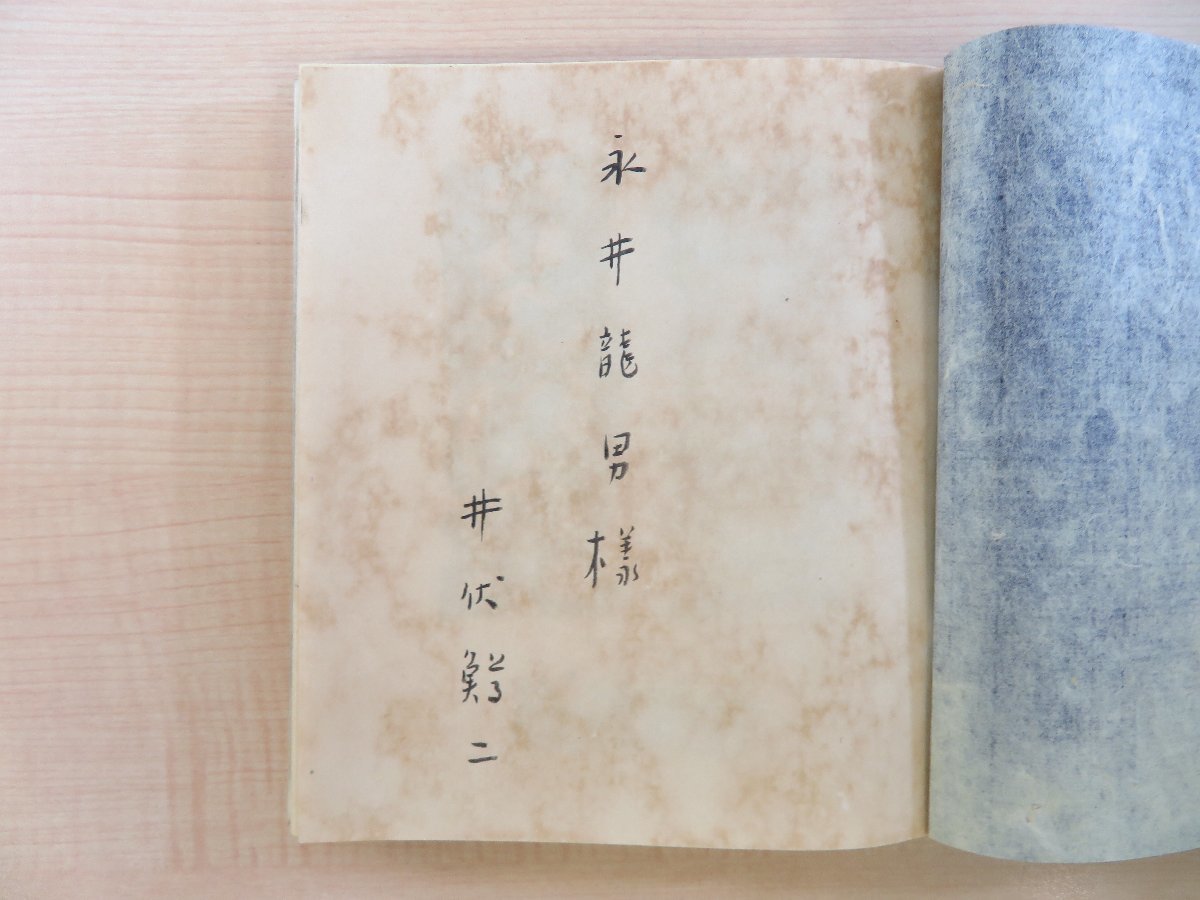 永井龍男様
井伏鱒二